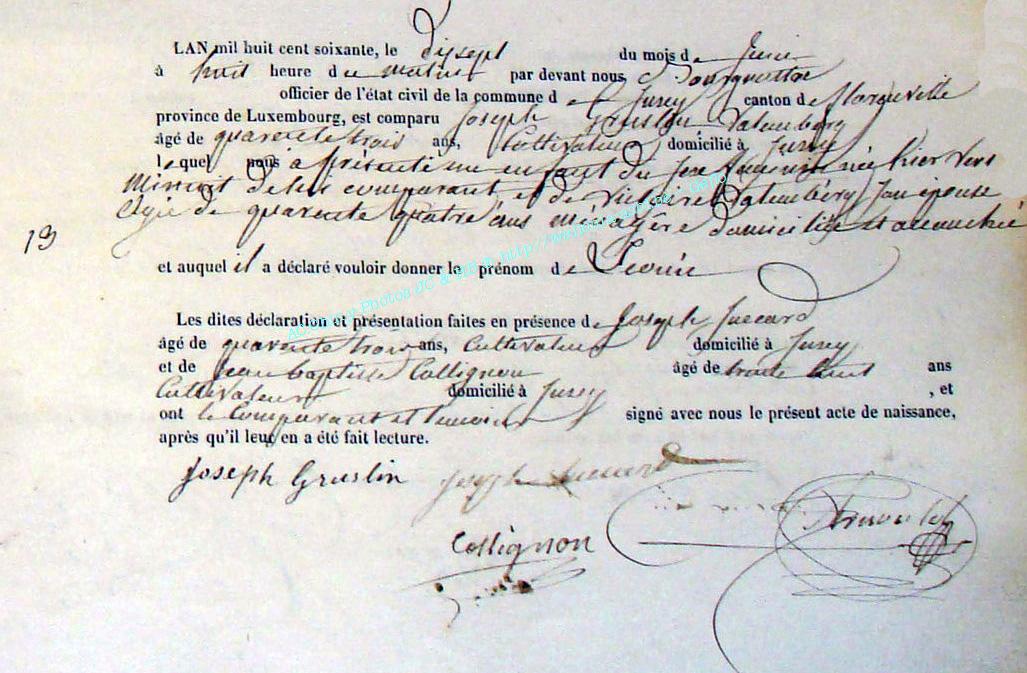 LAN mil huit cent soixante, le dixsept du mois de Juin
à huit heure du matin par devant nous
officier de l'état civil de la commune de Jusey canton de
province de Luxembourg, est comparu Joseph Graslin
âgé de quarente trois ans, Cultivateur domicilié à Jusey
lequel nous a présenté un enfant du sexe né hier vers
Minuit de lui comparant et de Valembérg son épouse
agée de quarente quatre ans Ménagère domiciliée et accouchée
13
et auquel il a déclaré vouloir donner le prénom de
Les dites déclaration et présentation faites en présence de Joseph
âgé de quarente trois ans, Cultivateur domicilié à Jusey
et de Jean baptiste Collignon âgé de trente huit ans
Cultivateur domicilié à Jusey , et
ont le Comparant et temoins signé avec nous le présent acte de naissance,
après qu'il leur en a été fait lecture.
Joseph Graslin Joseph
Collignon